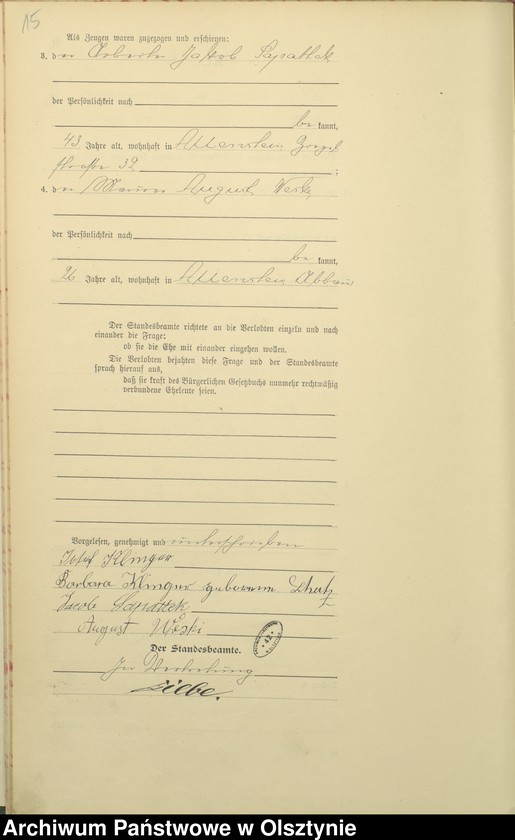 15
Als Zeugen waren zugezogen und erschienen:
3. der Arbeiter Jakob Sapattek
der Persönlichkeit nach
be kannt,
43 Jahre alt, wohnhaft in Allenstein
straße 39 ;
4. der Maurer August Weski
der Persönlichkeit nach
be kannt,
26 Jahre alt, wohnhaft in Allenstein Abbau
Der Standesbeamte richtete an die Verlobten einzeln und nach
einander die Frage:
ob sie die Ehe mit einander eingehen wollen.
Die Verlobten bejahten diese Frage und der Standesbeamte
sprach hierauf aus,
daß sie kraft des Bürgerlichen Gesetzbuchs nunmehr rechtmäßig
verbundene Eheleute seien.
Vorgelesen, genehmigt und unterschrieben
Josef Klinger
Barbara Klinger geborene
Jacob Sapattek
August Weski
Der Standesbeamte.
In Vertretung
Archiwum Państwowe w Olsztynie